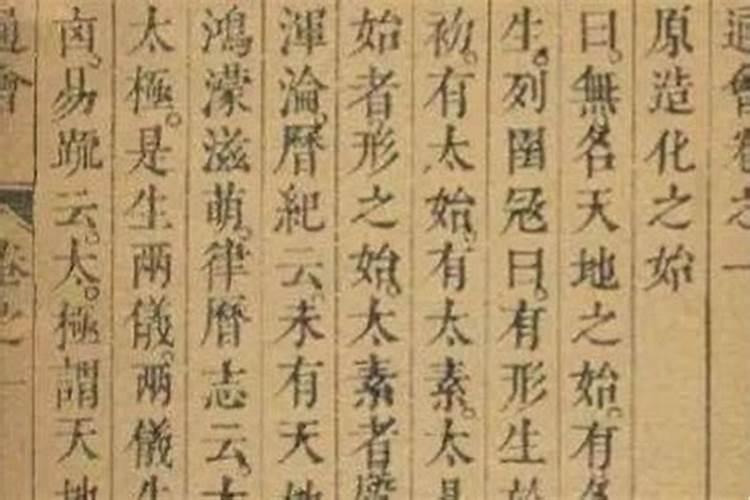 通會卷之一
原造化之始
曰無名天地之始有名
生列圄冦曰有形生於
初有太始有太素太
始者形之始太素者
渾淪曆紀云未有天地
鴻濛滋萌律曆志云太
太極是生兩儀兩儀生
卤易䟽云太極謂天地
通會 卷之一